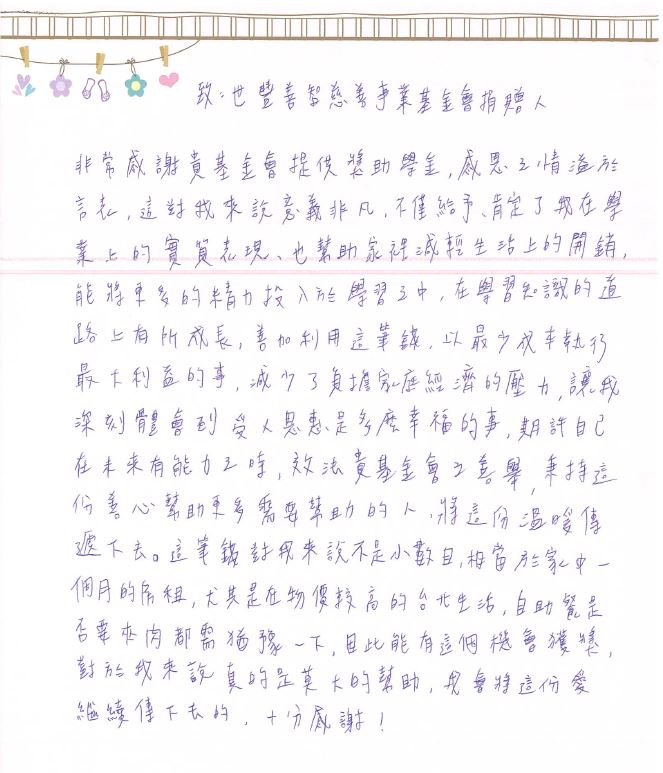 致：世豐善智慈善事業基金會捐贈人
非常感謝貴基金會提供獎助學金，感恩之情溢於
言表，這對我來說意義非凡，不僅給予、肯定了我在學
業上的實質表現、也幫助家裡減輕生活上的開銷，
能將更多的精力投入於學習之中，在學習知識的道
路上有所成長，善加利用這筆錢，以最少成本執行
最大利益的事，減少了負擔家庭經濟的壓力，讓我
深刻體會到受人恩惠是多麼幸福的事，期許自己
在未來有能力之時，效法貴基金會之善舉，秉持這
份善心幫助更多需要幫助的人，將這份溫暖傳
遞下去。這筆錢對我來說不是小數目，相當於家中一
個月的房租，尤其是在物價較高的台北生活，自助餐是
否要夾肉都需猶豫一下，因此能有這個機會獲獎，
對於我來說真的是莫大的幫助，我會將這份愛
繼續傳下去的，十分感謝！